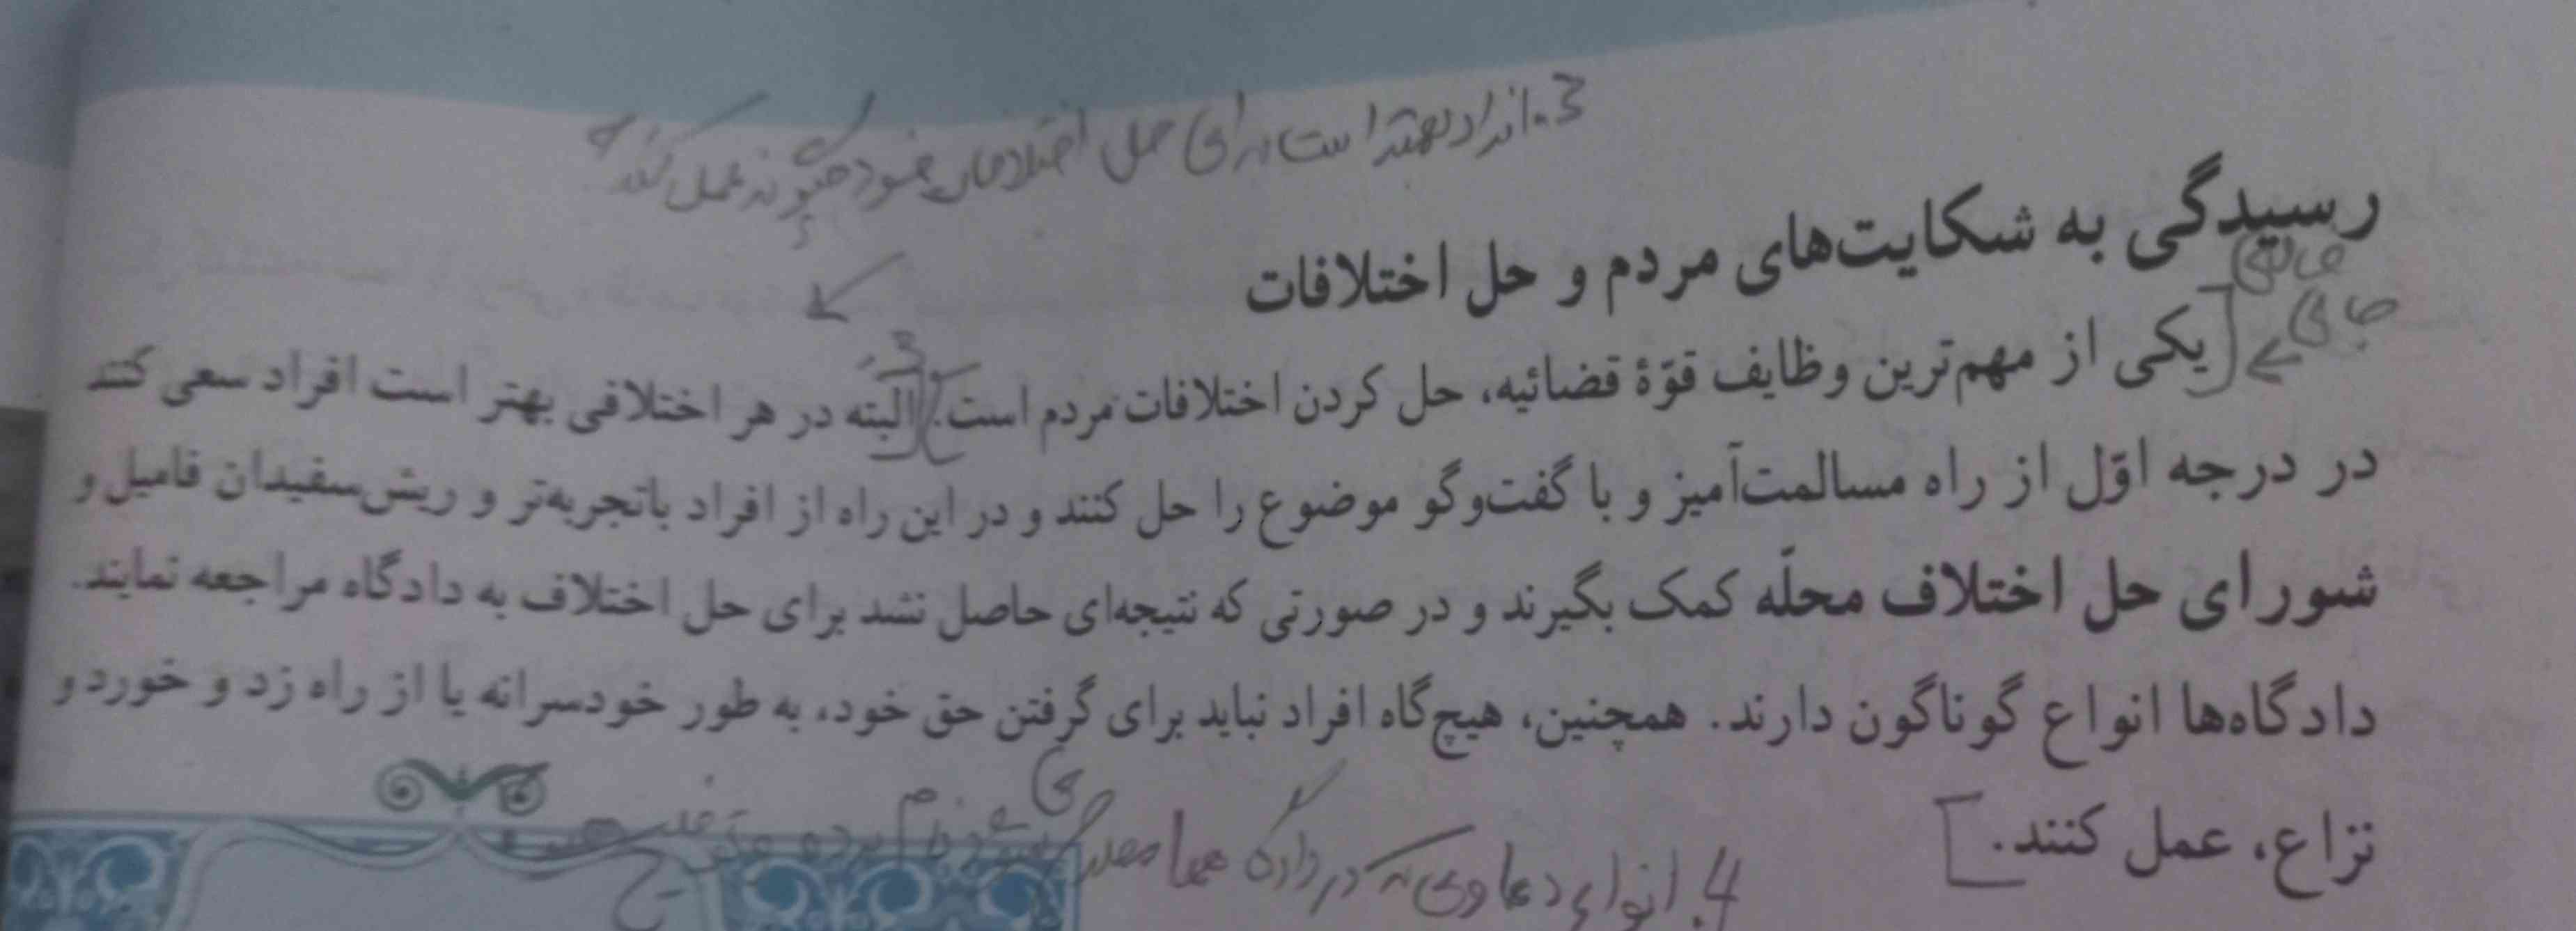 3. افراد بهتر است برای حل اختلافات خود چگونه عمل کنند؟
رسیدگی به شکایت‌های مردم و حل اختلافات
جالی
یکی از مهم‌ترین وظایف قوّهٔ قضائیه، حل کردن اختلافات مردم است. 3 البته در هر اختلافی بهتر است افراد سعی کنند
در درجه اوّل از راه مسالمت‌آمیز و با گفت‌وگو موضوع را حل کنند و در این راه از افراد باتجربه‌تر و ریش‌سفیدان فامیل و
شورای حل اختلاف محلّه کمک بگیرند و در صورتی که نتیجه‌ای حاصل نشد برای حل اختلاف به دادگاه مراجعه نمایند.
دادگاه‌ها انواع گوناگون دارند. همچنین، هیچ‌گاه افراد نباید برای گرفتن حق خود، به طور خودسرانه یا از راه زد و خورد و
نزاع، عمل کنند.
4. انواع دعاوی که در دادگاه ها مطرح می شود نام برده و توضیح